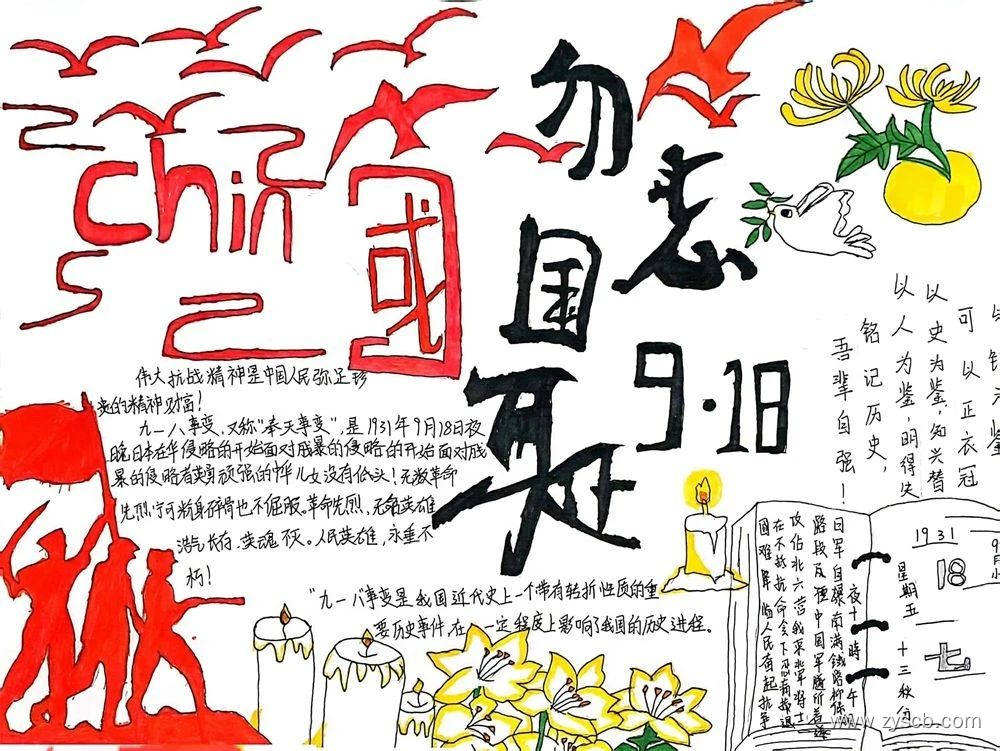 china
國
勿忘
国耻
9·18
伟大抗战精神是中国人民弥足珍
贵的精神财富!
九一八事变,又称“奉天事变”,是1931年9月18日夜
晚日本在华侵略的开始面对残暴的侵略的开始面对残
暴的侵略者英勇顽强的中华儿女没有低头!无数革命
先烈宁可粉身碎骨也不屈服。革命先烈、无名英雄
浩气长存,英魂不灭。人民英雄,永垂不
朽!
“九一八”事变是我国近代史上一个带有转折性质的重
要历史事件,在一定程度上影响了我国的历史进程。
可以正衣冠
以史为鉴,知兴替
以人为鉴,明得失
铭记历史,
吾辈自强!
1931
9月小
18
星期五
十三秋分
夜十时
日军自爆南满铁路柳
攻占北六营我东北军将士
在不抵抗命令下忍痛撤退
国难降临人民奋起抗争
www.zyscb.com